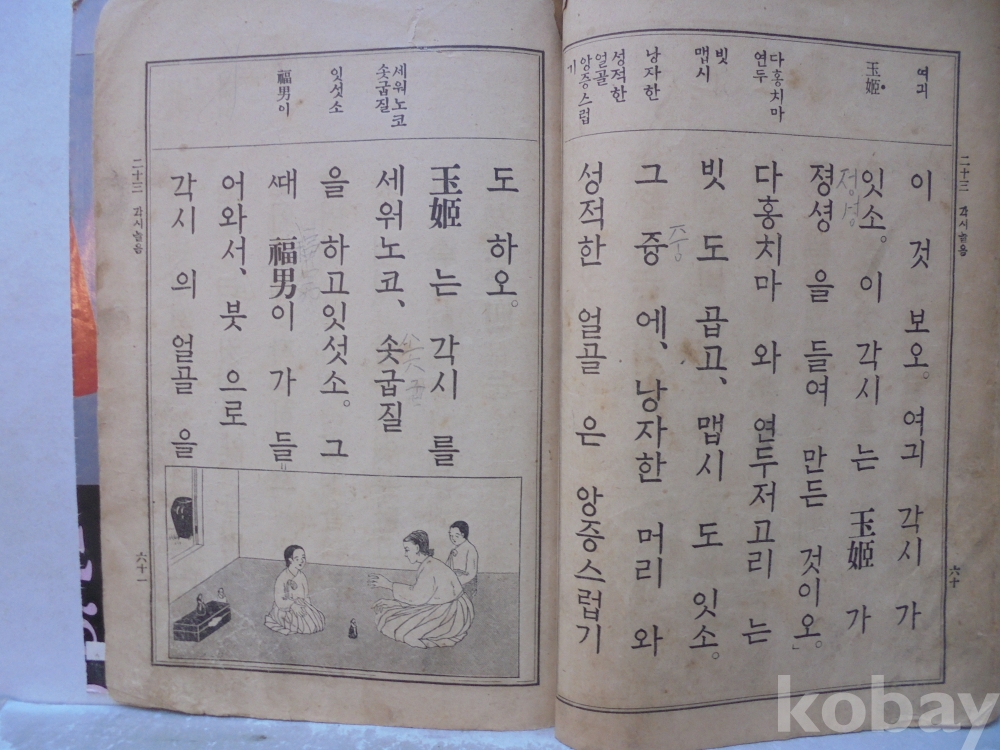 二十三 각시놀음
六十
여긔
玉姬
다홍치마
연두
빗
맵시
낭자한
성적한
얼골
앙증스럽
기
이 것 보오。 여긔 각시 가
잇소。 이 각시 는 玉姬 가
졍셩 을 들여 만든 것이오。
다홍치마 와 연두저고리 는
빗 도 곱고、 맵시 도 잇소。
그 즁 에、 낭자한 머리 와
성적한 얼골 은 앙증스럽기
정성
중
세워노코
솟굽질
잇섯소
福男이
도 하오。
玉姬 는 각시 를
세워노코、 솟굽질
을 하고잇섯소。 그
ᄯᅢ 福男이 가 들
어와서、 붓 으로
각시 의 얼골 을
二十三 각시놀음
六十一
kobay